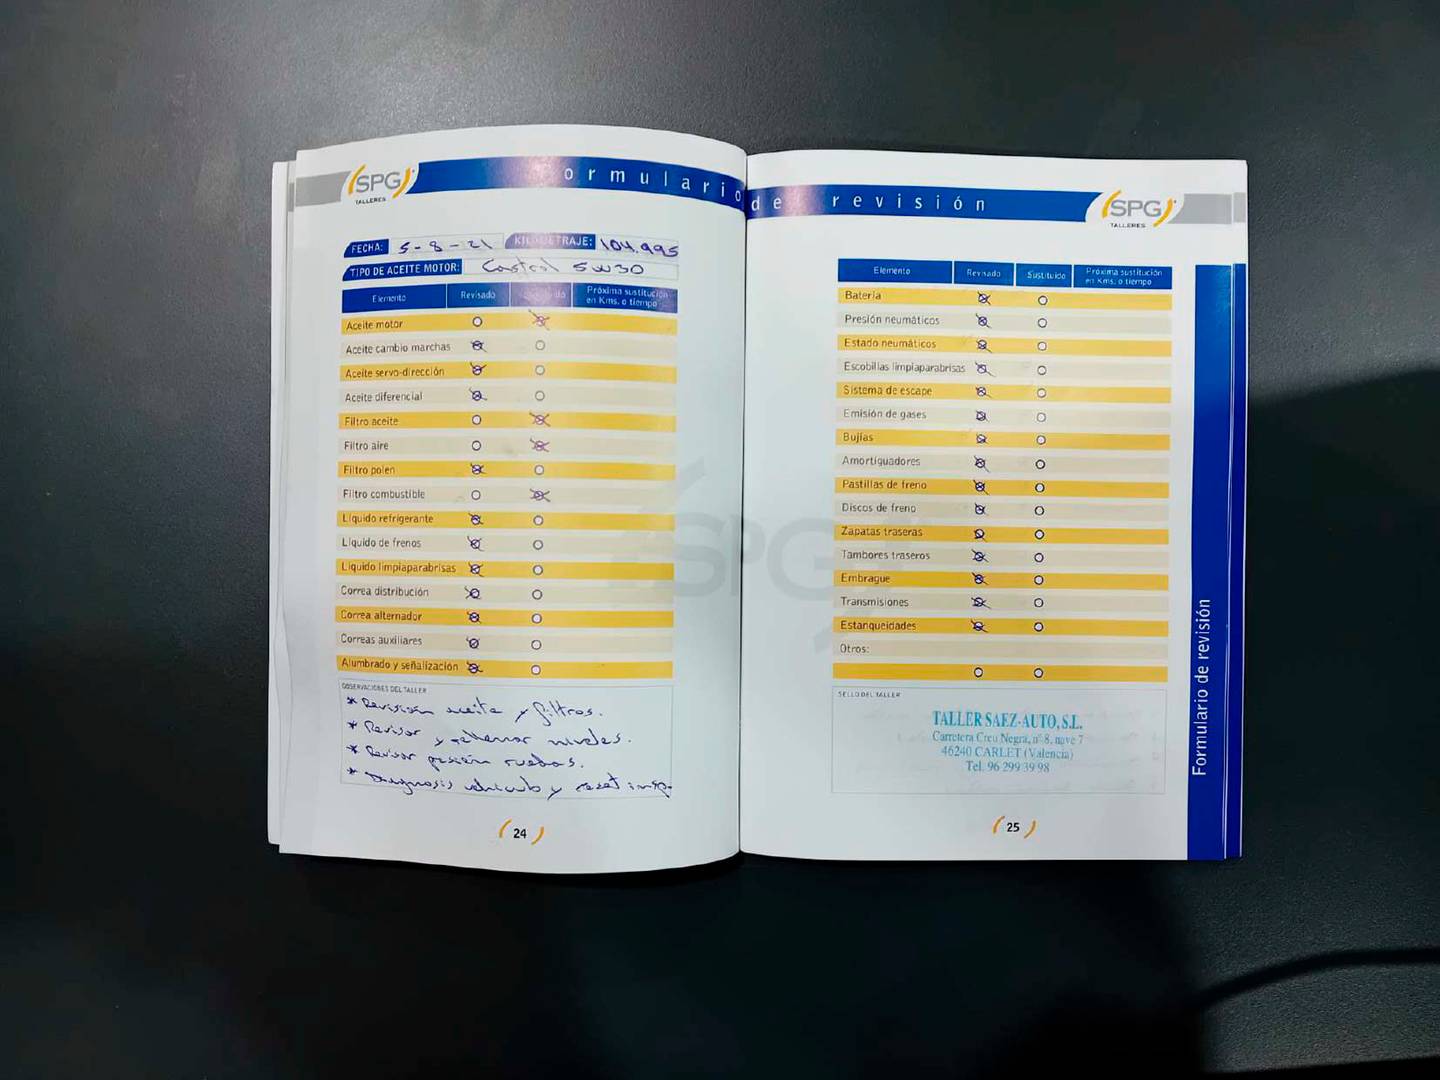 SPG
TALLERES
Formulario de revisión
SPG
TALLERES
FECHA: 5-8-21 KILOMETRAJE: 104.995
TIPO DE ACEITE MOTOR: Castrol 5W30
Elemento Revisado Próxima sustitución
en Kms. o tiempo
Aceite motor
Aceite cambio marchas
Aceite servo-dirección
Aceite diferencial
Filtro aceite
Filtro aire
Filtro polen
Filtro combustible
Líquido refrigerante
Líquido de frenos
Líquido limpiaparabrisas
Correa distribución
Correa alternador
Correas auxiliares
Alumbrado y señalización
OBSERVACIONES DEL TALLER
* Revisión aceite y filtros.
* Revisar y rellenar niveles.
* Revisar presión ruedas.
* Diagnosis vehiculo y reset insp.
24
Elemento Revisado Sustituido Próxima sustitución
en Kms. o tiempo
Batería
Presión neumáticos
Estado neumáticos
Escobillas limpiaparabrisas
Sistema de escape
Emisión de gases
Bujías
Amortiguadores
Pastillas de freno
Discos de freno
Zapatas traseras
Tambores traseros
Embrague
Transmisiones
Estanqueidades
Otros:
SELLO DEL TALLER
TALLER SAEZ-AUTO, S.L.
Carretera Creu Negra, nº 8, nave 7
46240 CARLET (Valencia)
Tel. 96 299 39 98
25
Formulario de revisión
SPG